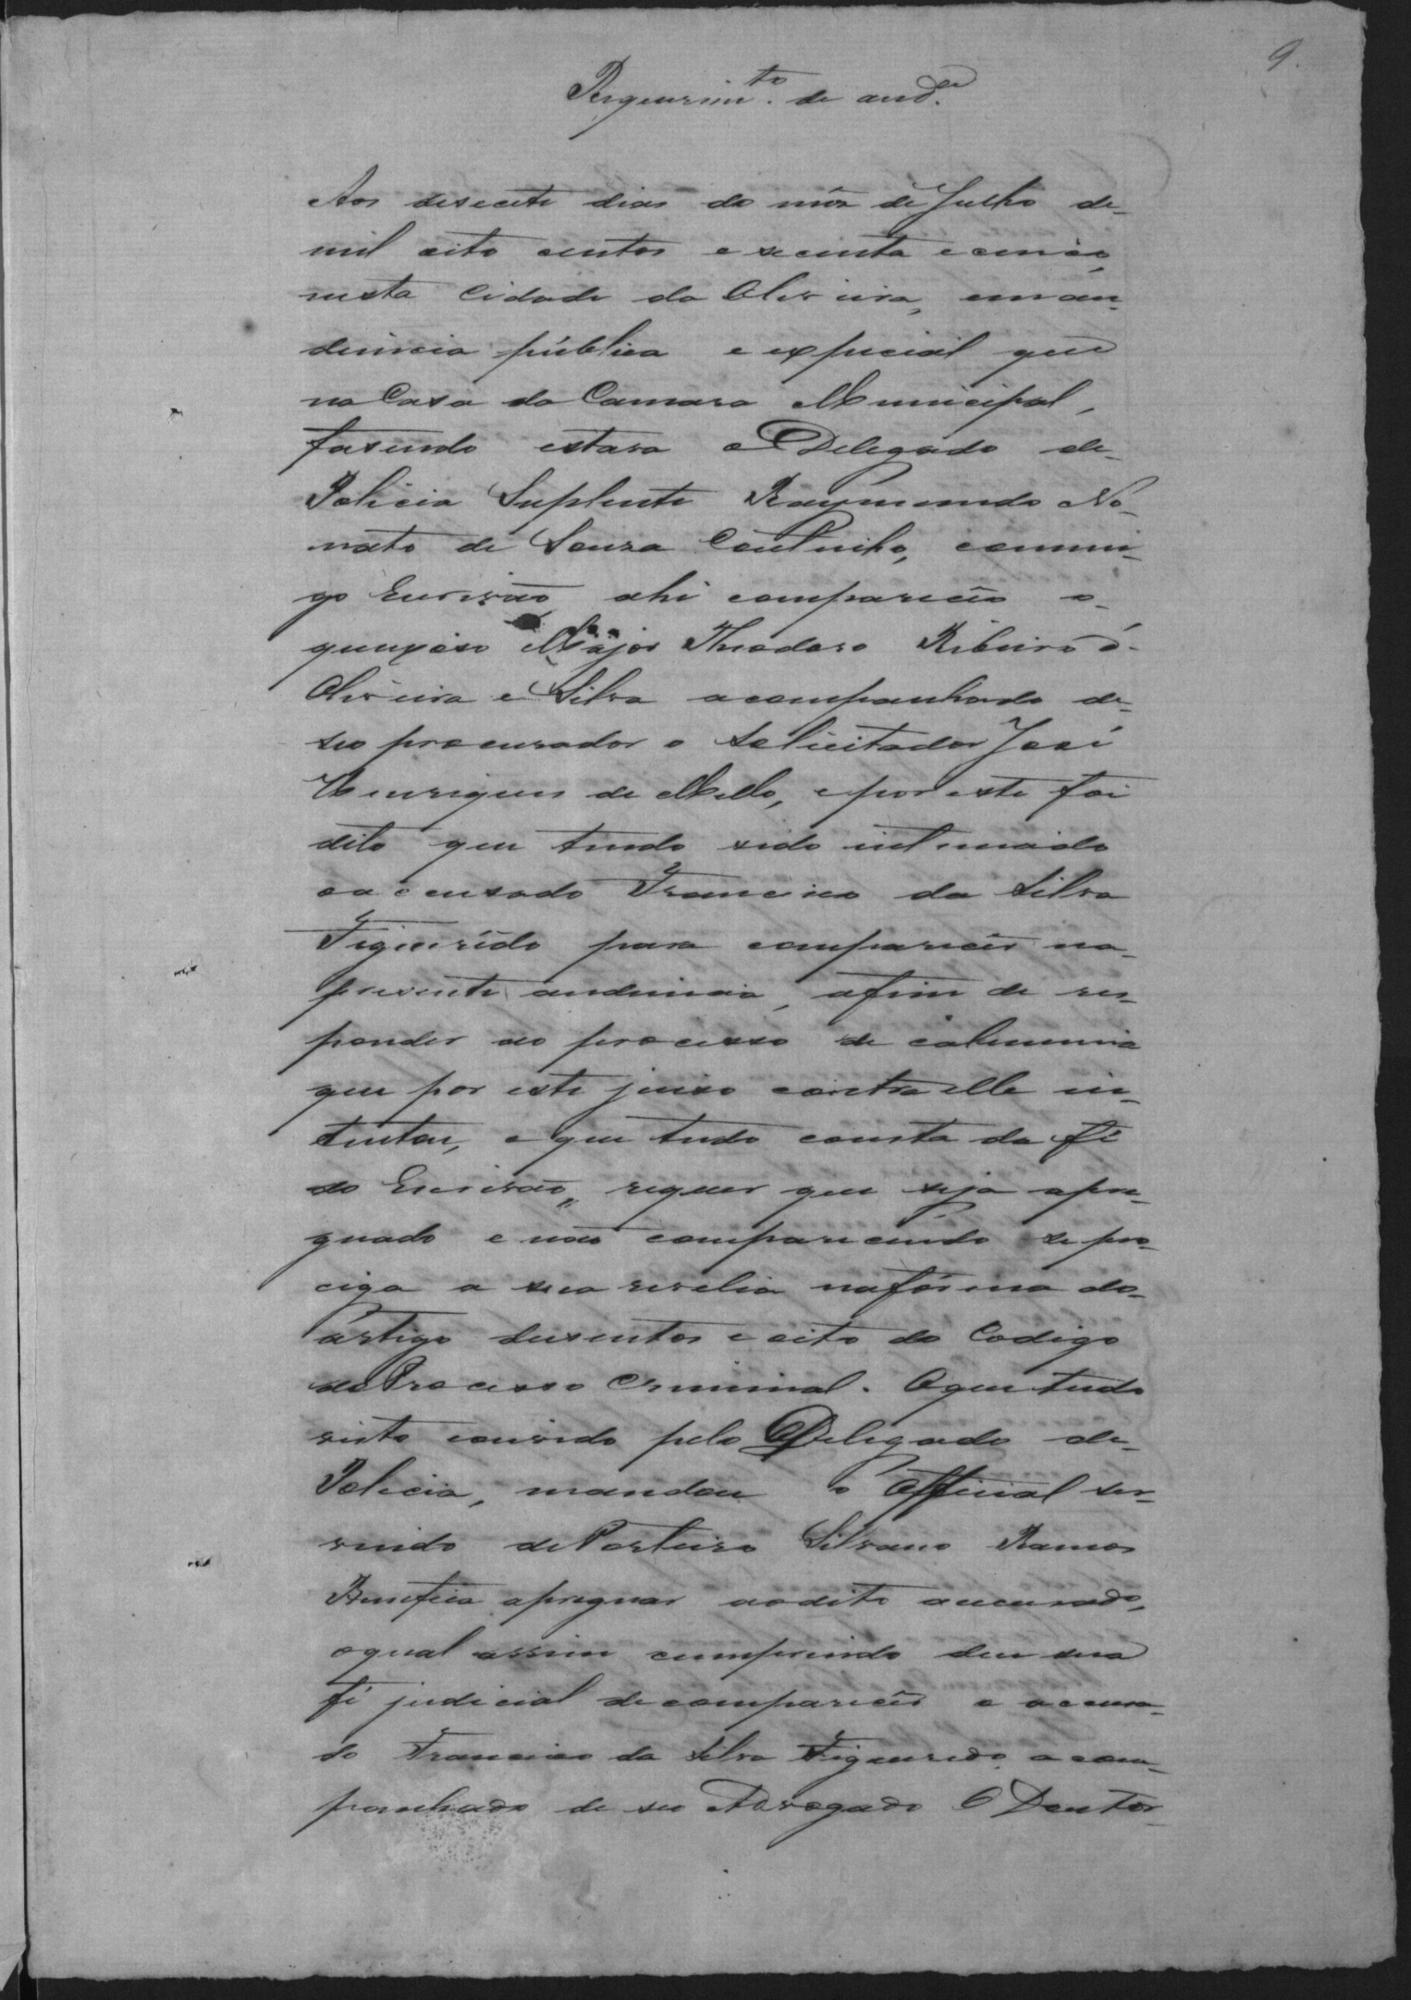 9.
Requerim.to de aud.a
Aos deseceti dias do mês de Julho de
mil oito centos e secenta e cinco,
nesta Cidade da Oliveira, em au-
diencia pública e especial que
na Casa da Camara Municipal,
fasendo estava o Delegado de
Policia Suplente Raymundo No-
nato de Souza Coutinho, commi-
go Escrivão ahi compareceo o
queixoso Major Theodoro Ribeiro d'
Oliveira e Silva acompanhado de
seo procurador o Solicitador José
Henriques de Mello, e por este foi
dito que tendo sido intimado
o accusado Francisco da Silva
Figuerêdo para comparecêr na
presente audiencia, afim de res-
ponder ao processo de calumnia
que por este juiso contra elle in-
tentou, e que tudo consta da fé
do Escrivão, requer que seja apre-
guado e não comparecendo se pro-
ciga a sua revelia na fórma do
artigo dusentos e oito do Codigo
do Processo Criminal. O que tudo
visto e ouvido pelo Delegado de
Policia, mandou o Official ser-
vindo de Porteiro Silvano Ramos
Benefica apreguar ao dito accusado,
o qual assim cumprindo deu sua
fé judicial de comparecêr o accusa-
do Francisco da Silva Figueredo acom-
panhado de seo Advogado O Doutor